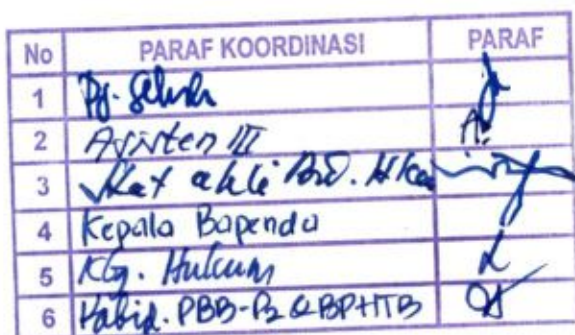 No PARAF KOORDINASI PARAF
1 Pj. Sekda
2 Asisten III
3 Staf ahli Bid.
4 Kepala Bapenda
5 Kbg. Hukum
6 Kabid. PBB-P2 & BPHTB